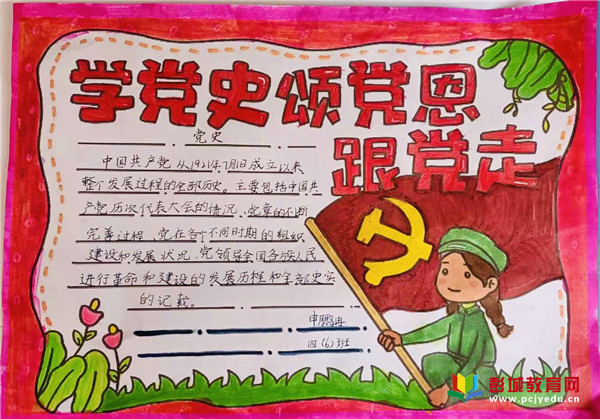 学党史颂党恩
跟党走
党史
中国共产党从1921年7月1日成立以来
整个发展过程的全部历史。主要包括中国共
产党历次代表大会的情况、党章的不断
完善过程、党在各个不同时期的组织
建设和发展状况、党领导全国各族人民
进行革命和建设的发展历程和全部史实
的记载。
四(6)班
彭城教育网
www.pcjyedu.cn